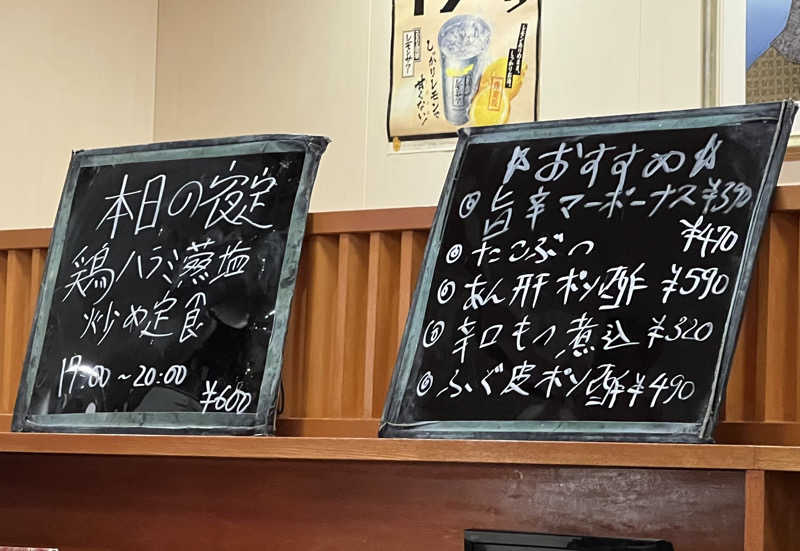 本日の夜定
鶏ハラミ葱塩
炒め定食
17:00～20:00
¥600
レモンサワー
しっかりレモンで
甘くない!
☆おすすめ☆
旨辛マーボーナス ¥390
たこぶつ ¥470
あん肝ポン酢 ¥590
辛口もつ煮込 ¥320
ふぐ皮ポン酢 ¥490